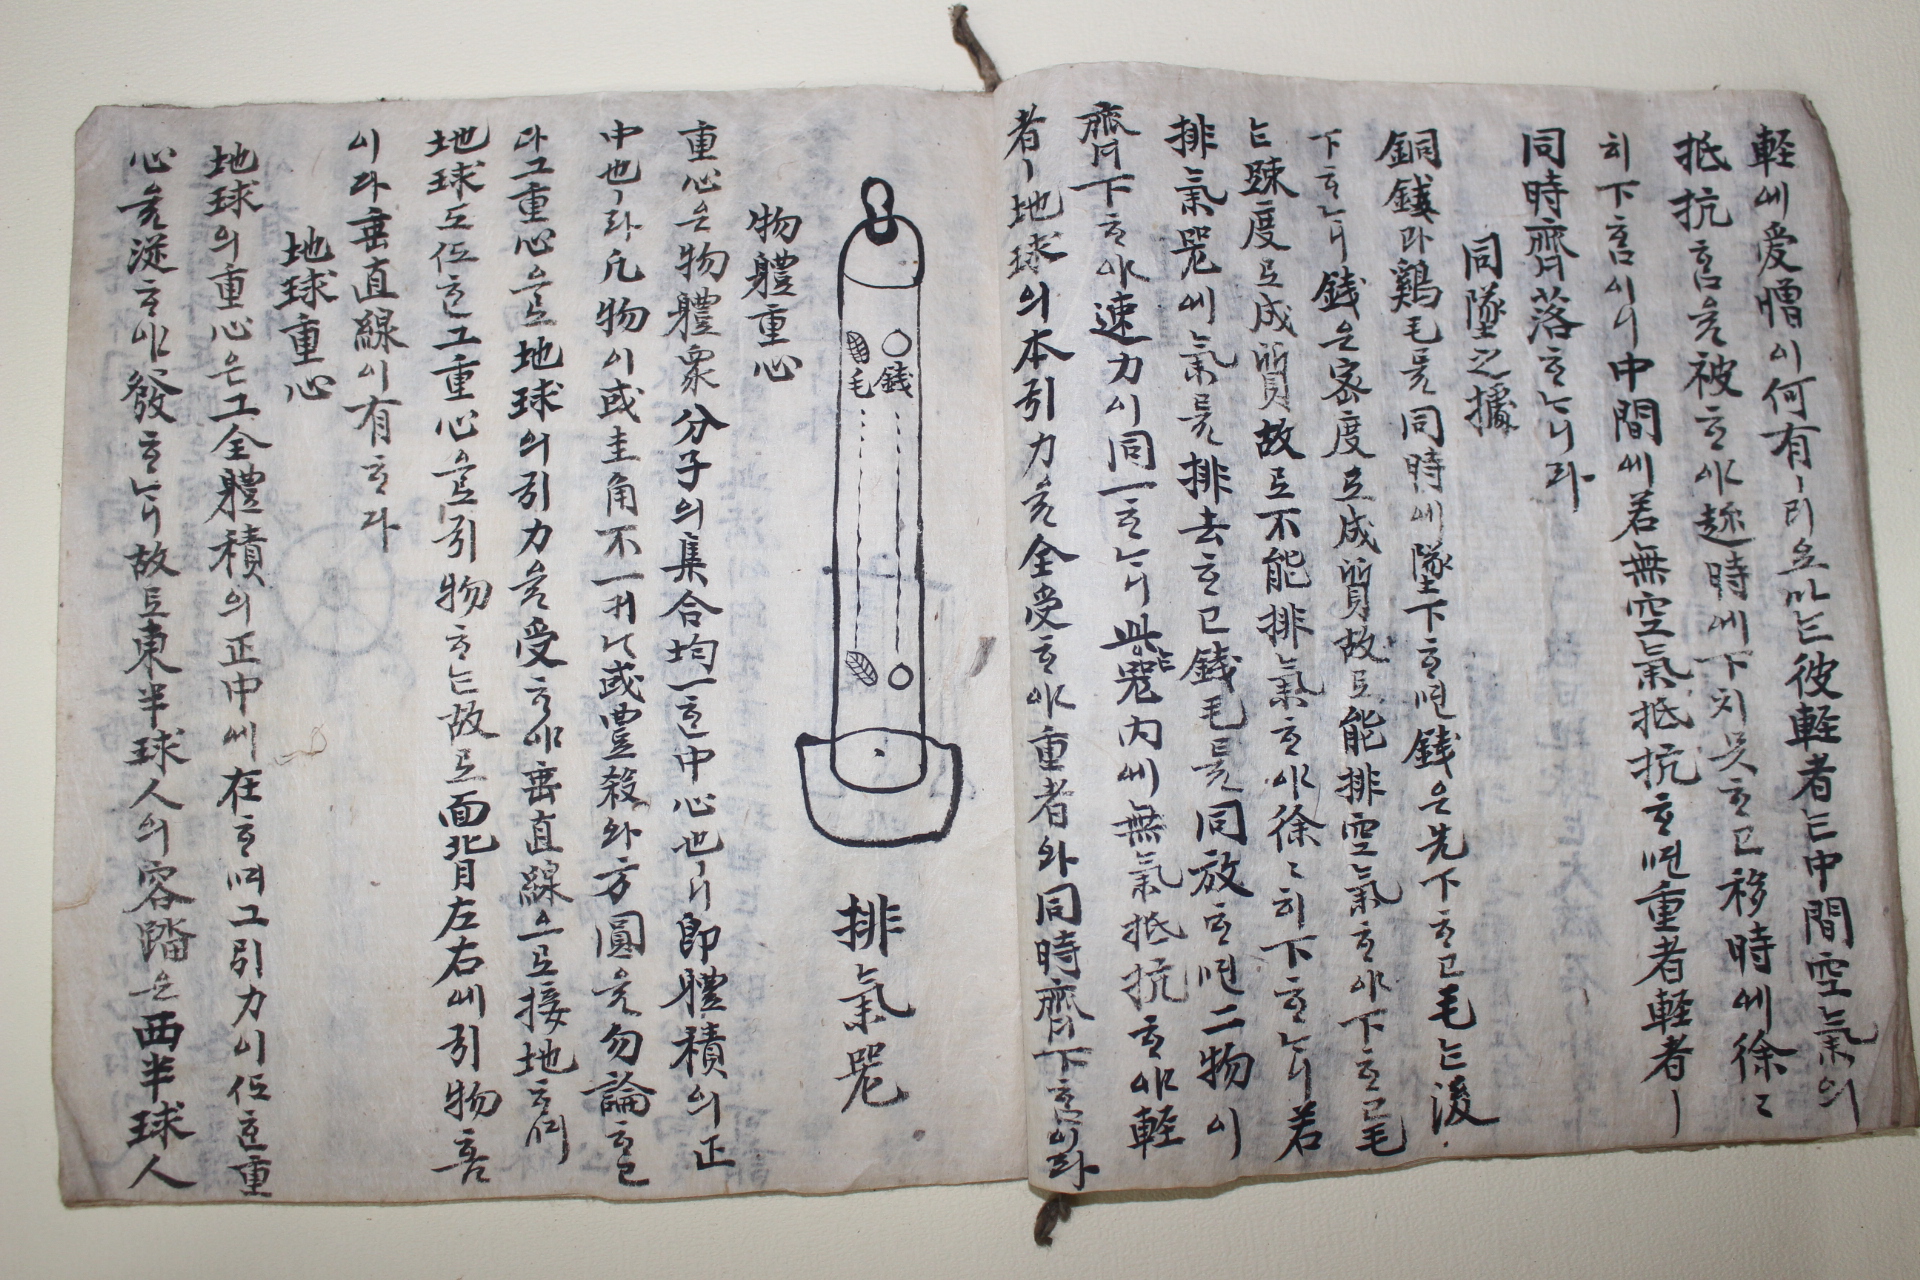 輕에愛憎이何有ㅣ리요마는彼輕者는中間空氣의
抵抗흠을被ᄒᆞ야趂時에下치못ᄒᆞ고移時에徐〻
히下흠이니中間에若無空氣抵抗ᄒᆞ면重者輕者ㅣ
同時齊落ᄒᆞᄂᆞ니라
同墜之據
銅錢과鷄毛를同時에墜下ᄒᆞ면錢은先下ᄒᆞ고毛는後
下ᄒᆞᄂᆞ니錢은密度로成質故로能排空氣ᄒᆞ야下ᄒᆞ고毛
는踈度로成質故로不能排氣ᄒᆞ야徐〻히下ᄒᆞᄂᆞ니若
排氣器에氣를排去ᄒᆞ고錢毛를同放ᄒᆞ면二物이
齊下ᄒᆞ야速力이同一ᄒᆞᄂᆞ니此는器內에無氣抵抗ᄒᆞ야輕
者ㅣ地球의本引力을全受ᄒᆞ야重者와同時齊下흠이라
錢
毛
排氣器
物體重心
重心은物體衆分子의集合均一ᄒᆞᆫ中心也ㅣ니卽體積의正
中也ㅣ라凡物이或圭角不一커ᄂᆞ或豊殺와方圓을勿論ᄒᆞ고
다그重心으로地球의引力을受ᄒᆞ야垂直線으로接地ᄒᆞ며
地球도亦ᄒᆞᆫ그重心으로引物ᄒᆞ는故로面背左右에引物흠
이다垂直線이有ᄒᆞ다
地球重心
地球의重心은그全體積의正中에在ᄒᆞ며그引力이亦ᄒᆞᆫ重
心을從ᄒᆞ야發ᄒᆞᄂᆞ니故로東半球人의容踏은西半球人